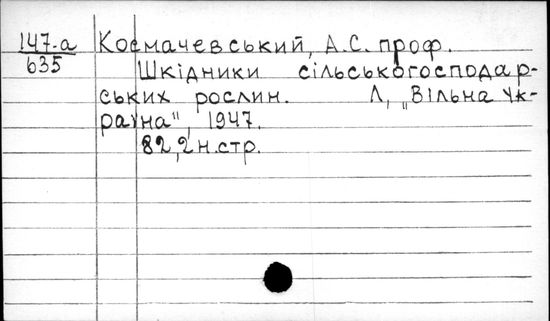 147-а Космачевський, А.С. проф.
635 Шкідники сільськогосподар-
ських рослин. Л, „Вільна Ук-
раїна", 1947.
82,2н.стр.